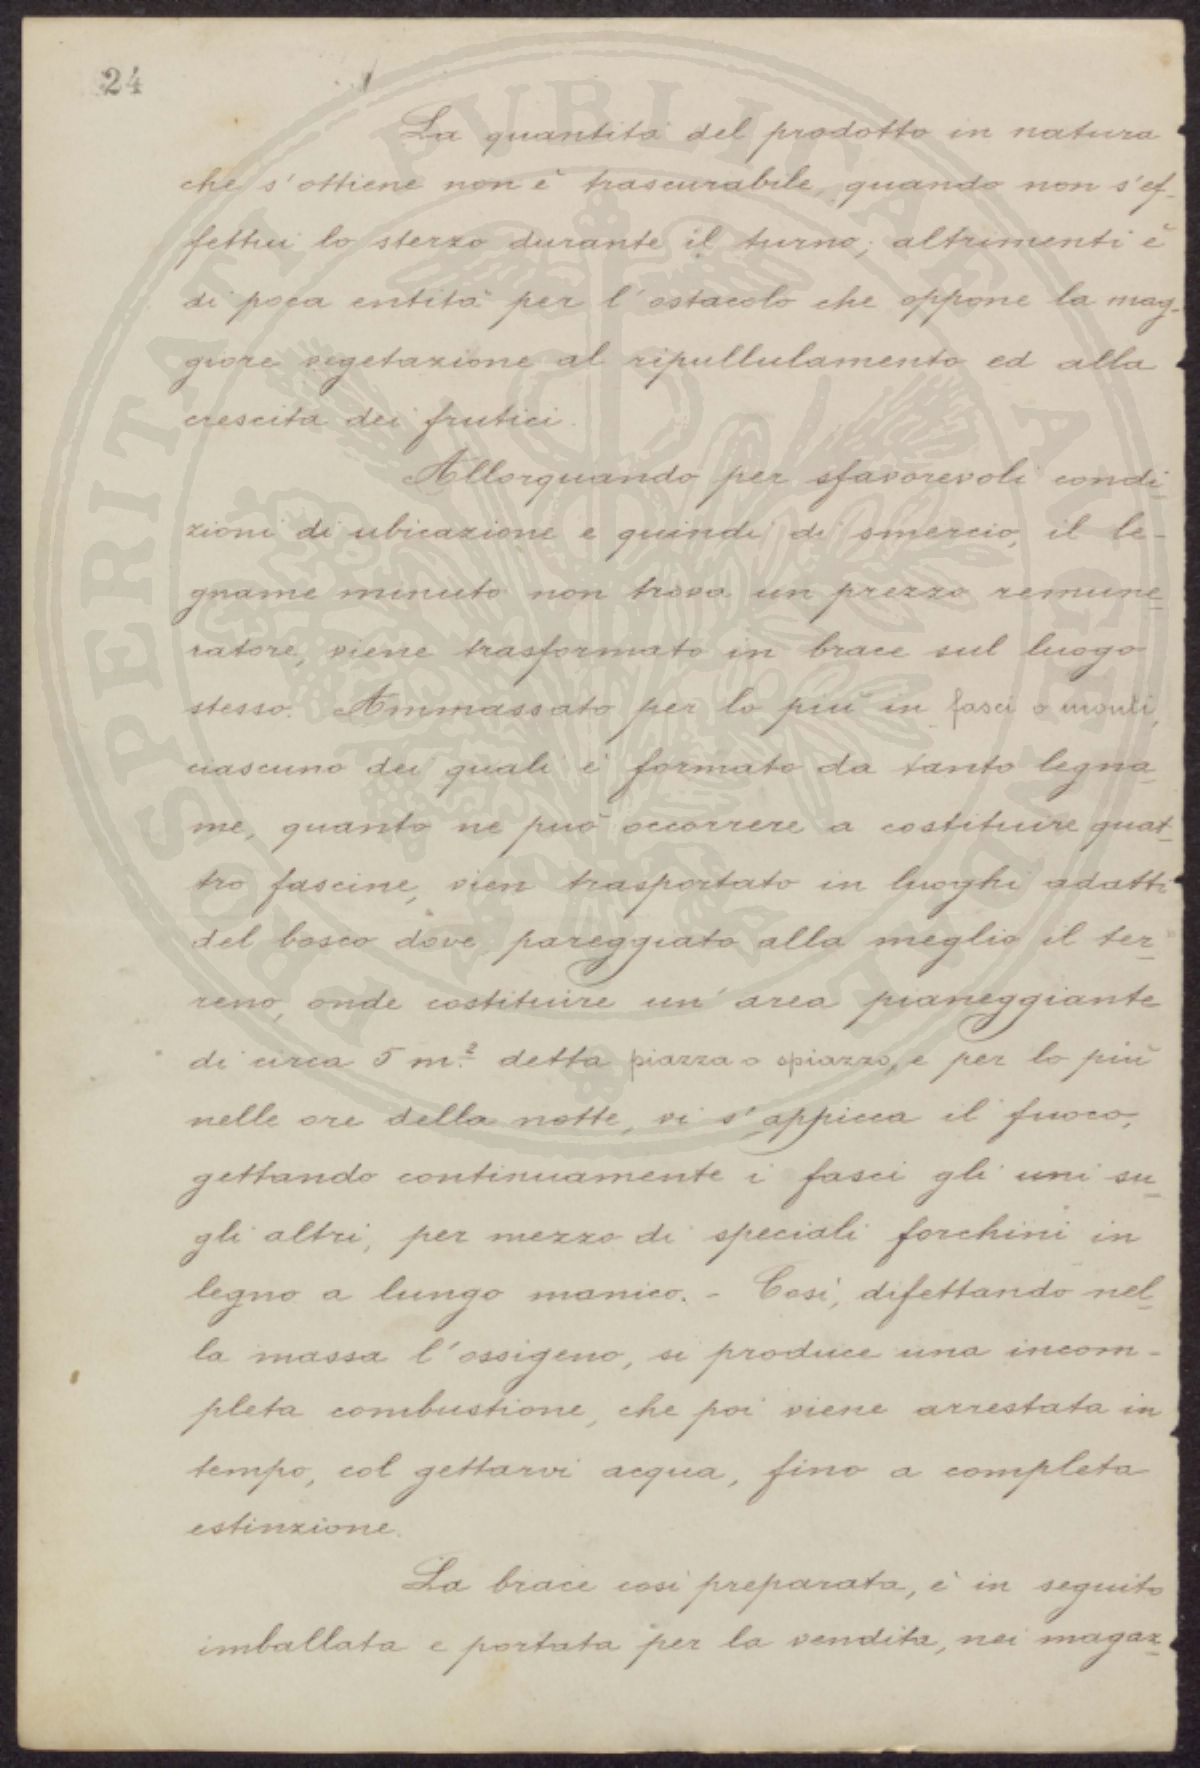 24
La quantità del prodotto in natura
che s'ottiene non è trascurabile, quando non s'ef-
fettui lo sterzo durante il turno; altrimenti è
di poca entità per l'ostacolo che oppone la mag-
giore vegetazione al ripullulamento ed alla
crescita dei frutici.
Allorquando per sfavorevoli condi-
zioni di ubicazione e quindi di smercio, il le-
gname minuto non trova un prezzo remune-
ratore, viene trasformato in brace sul luogo
stesso. Ammassato per lo più in fasci o monti,
ciascuno dei quali è formato da tanto legna-
me, quanto ne può occorrere a costituire quat-
tro fascine, vien trasportato in luoghi adatti
del bosco dove, pareggiato alla meglio il ter-
reno, onde costituire un'area pianeggiante
di circa 5 m.² detta piazza o spiazzo, e per lo più
nelle ore della notte, vi s'appicca il fuoco,
gettando continuamente i fasci gli uni su-
gli altri, per mezzo di speciali forchini in
legno a lungo manico. - Così, difettando nel-
la massa l'ossigeno, si produce una incom-
pleta combustione, che poi viene arrestata in
tempo, col gettarvi acqua, fino a completa
estinzione.
La brace così preparata, è in seguito
imballata e portata per la vendita, nei magaz-
PROSPERITATI PVBLICAE AVGENDAE